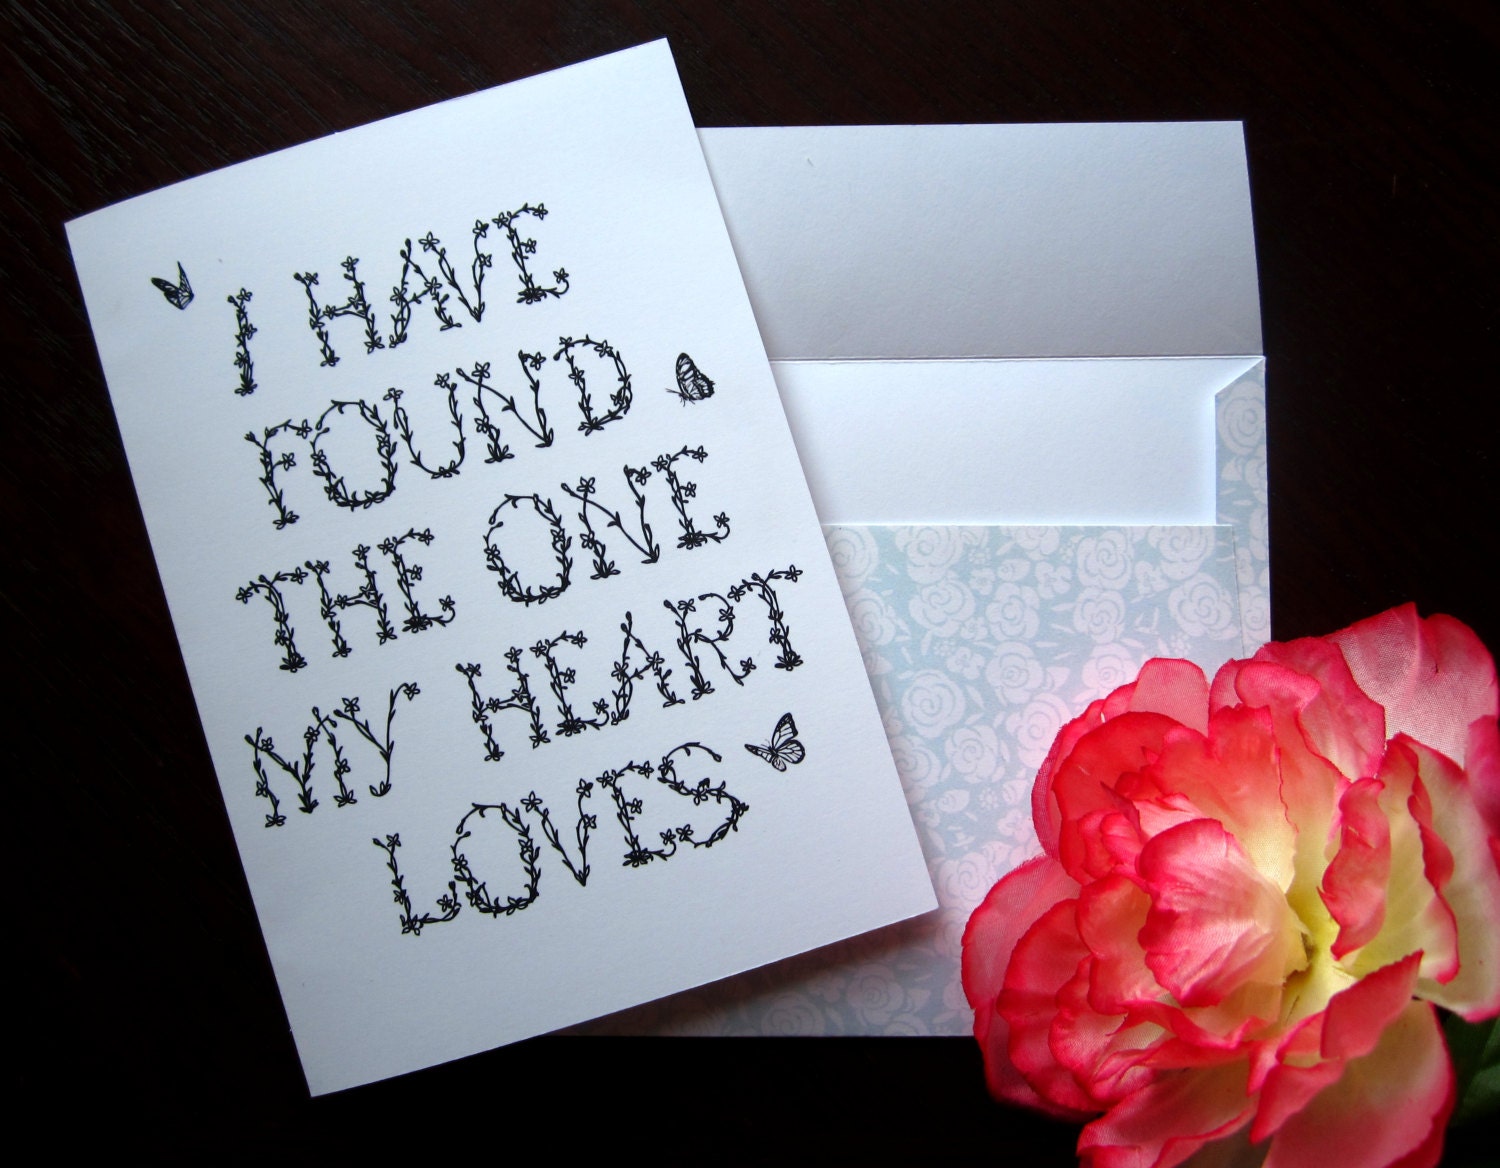 I HAVE
FOUND
THE ONE
MY HEART
LOVES